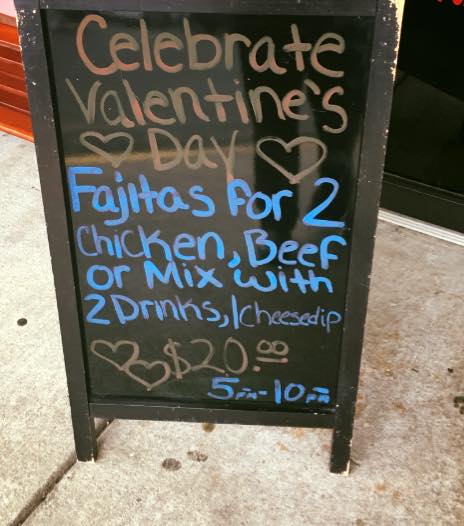 Celebrate
Valentine's
Day
Fajitas for 2
Chicken, Beef
or Mix with
2 Drinks, 1 cheesedip
$20.00
5PM-10PM